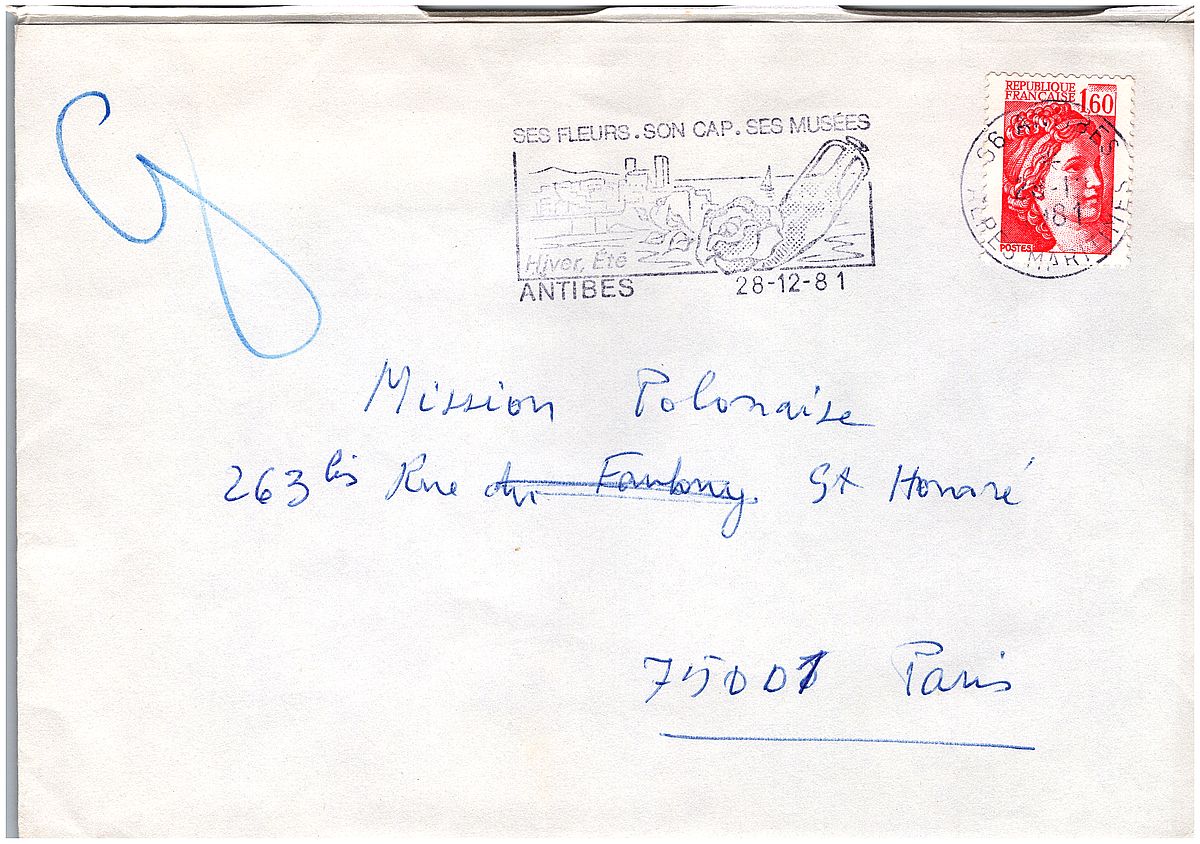 SES FLEURS. SON CAP. SES MUSÉES
Hiver, Été
ANTIBES 28-12-81
REPUBLIQUE
FRANÇAISE 1,60
POSTES
06 ANTIBES
28-12
1981
ALPES MARITIMES
Mission Polonaise
263 bis Rue du Faubourg St Honoré
75001 Paris